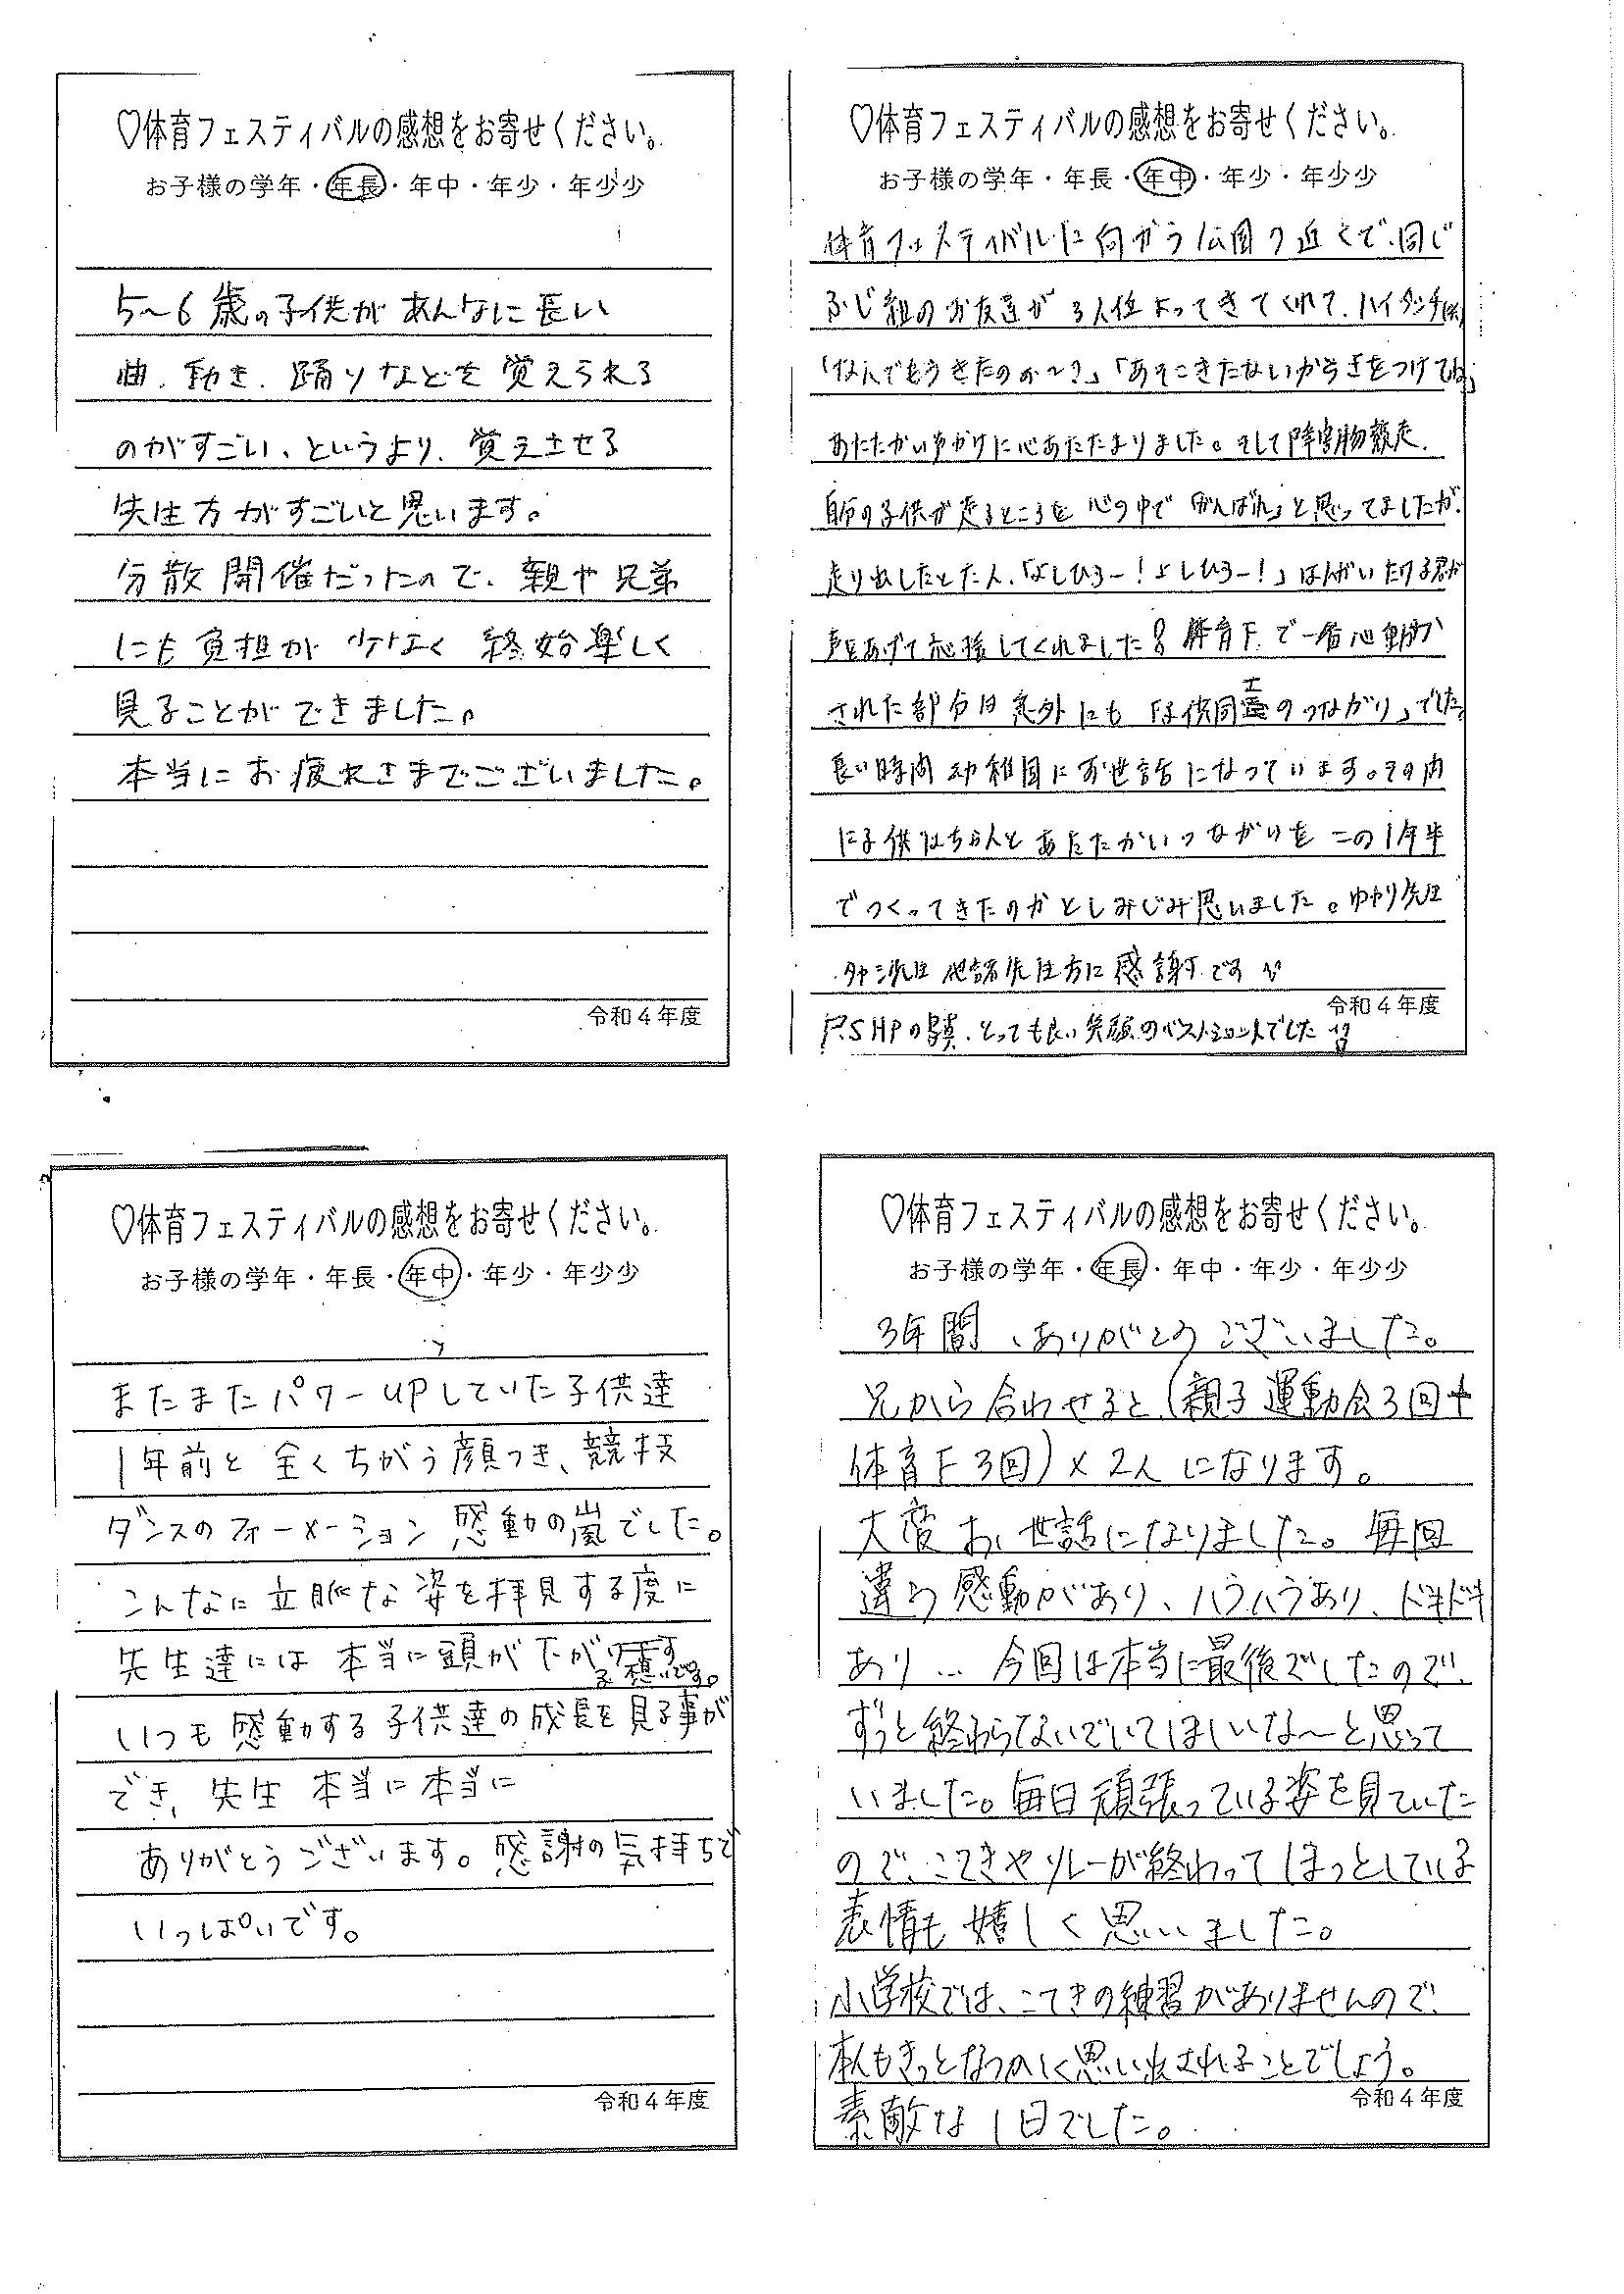 ♡体育フェスティバルの感想をお寄せください。
お子様の学年・年長・年中・年少・年少少
5〜6歳の子供があんなに長い
曲、動き、踊りなどを覚えられる
のがすごい、というより、覚えさせる
先生方がすごいと思います。
分散開催だったので、親や兄弟
にも負担が少なく終始楽しく
見ることができました。
本当にお疲れさまでございました。
令和4年度
♡体育フェスティバルの感想をお寄せください。
お子様の学年・年長・年中・年少・年少少
体育フェスティバルに向かう公園の近くで、同じ
ふじ組のお友達が3人位よってきてくれて、ハイタッチ
「なんでもうきたのか〜?」「あそこきたないから気をつけてね」
あたたかい声かけに心あたたまりました。そして障害物競走、
自分の子供が走るところを心の中で「がんばれ」と思ってましたが、
走り出したとたん、「よしひろー!よしひろー!」はんがいたける君が
声をあげて応援してくれました!体育F.で一番心動か
された部分は意外にも「子供同士のつながり」でした。
長い時間幼稚園にお世話になっています。その内
に子供はちゃんとあたたかいつながりをこの1年半
でつくってきたのかとしみじみ思いました。ゆかり先生
先生他諸先生方に感謝です
P.S HPの写真、とっても良い笑顔のベストショットでした
令和4年度
♡体育フェスティバルの感想をお寄せください。
お子様の学年・年長・年中・年少・年少少
またまたパワーUPしていた子供達
1年前と全くちがう顔つき、競技
ダンスのフォーメーション感動の嵐でした。
こんなに立派な姿を拝見する度に
先生達には本当に頭が下がる想いです。
いつも感動する子供達の成長を見る事が
でき、先生本当に本当に
ありがとうございます。感謝の気持ちで
いっぱいです。
令和4年度
♡体育フェスティバルの感想をお寄せください。
お子様の学年・年長・年中・年少・年少少
3年間、ありがとうございました。
兄から合わせると(親子運動会3回+
体育F3回)×2人になります。
大変お世話になりました。毎回
違う感動があり、ハラハラあり、ドキドキ
あり…今回は本当に最後でしたので、
ずっと終わらないでいてほしいな〜と思って
いました。毎日頑張っている姿を見ていた
ので、こてきやリレーが終わってほっとしている
表情も嬉しく思いました。
小学校では、こてきの練習がありませんので、
本人もきっとなつかしく思い出されることでしょう。
素敵な1日でした。
令和4年度